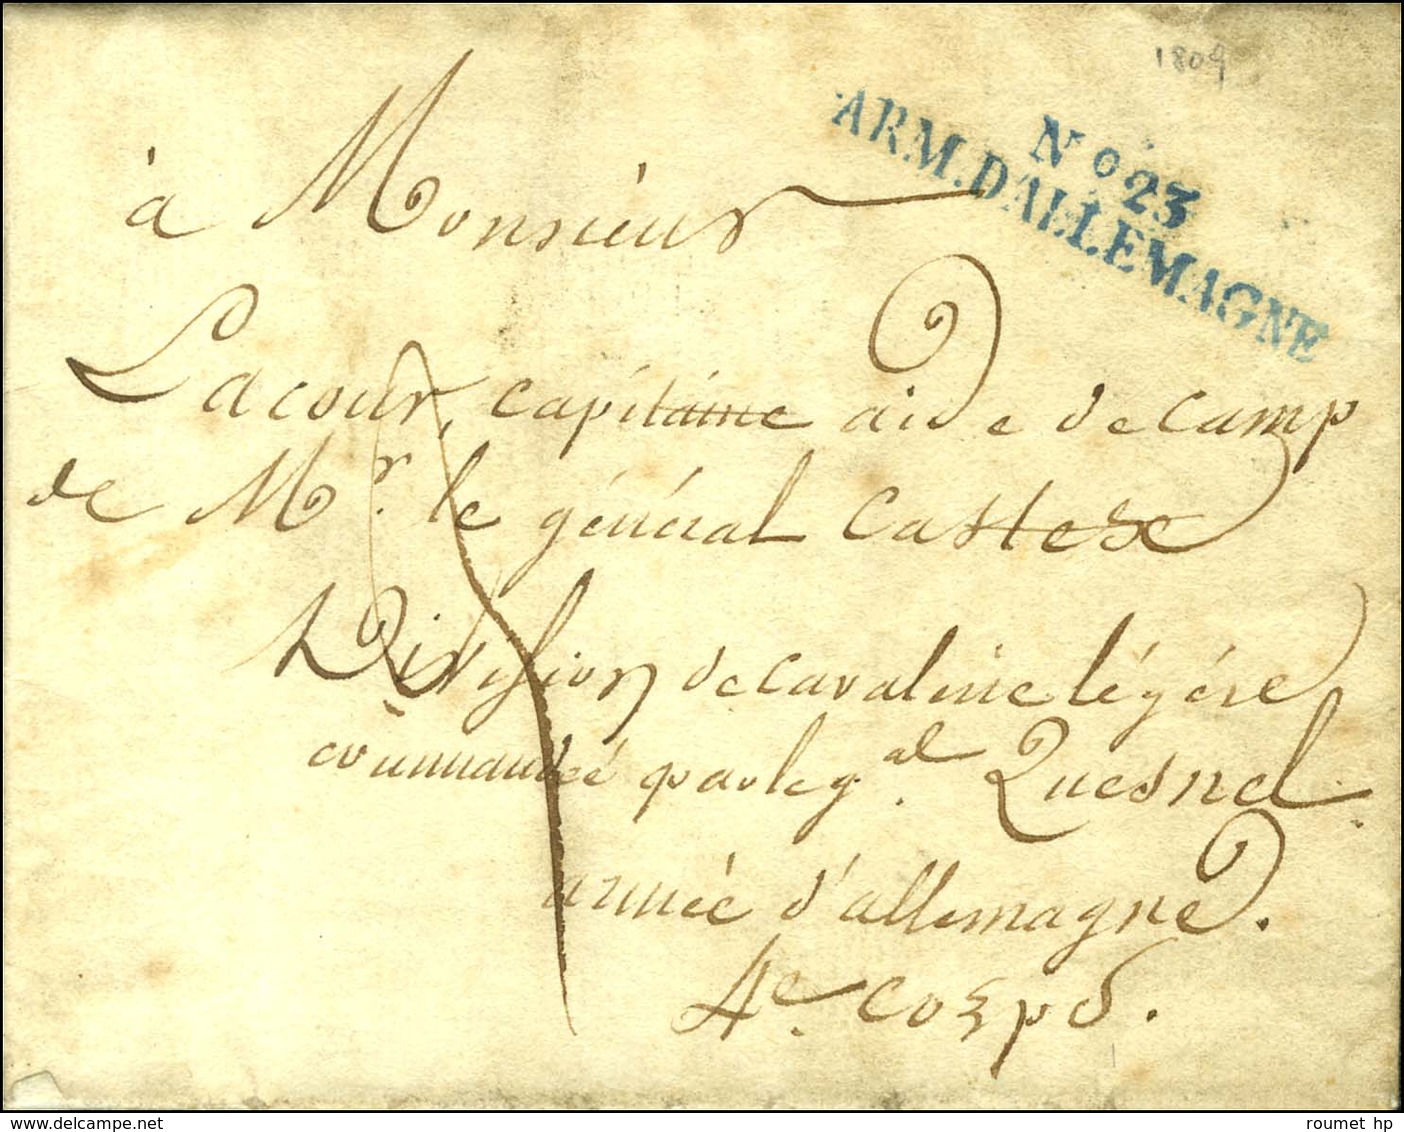 1809
N° 23
ARM. D'ALLEMAGNE
à Monsieur
Lacour, capitaine aide de camp
de Mr. le général Castex
Division de cavalerie légére
commandée par le gal. Quesnel.
armée d'allemagne.
4e. corps.
roumet hp